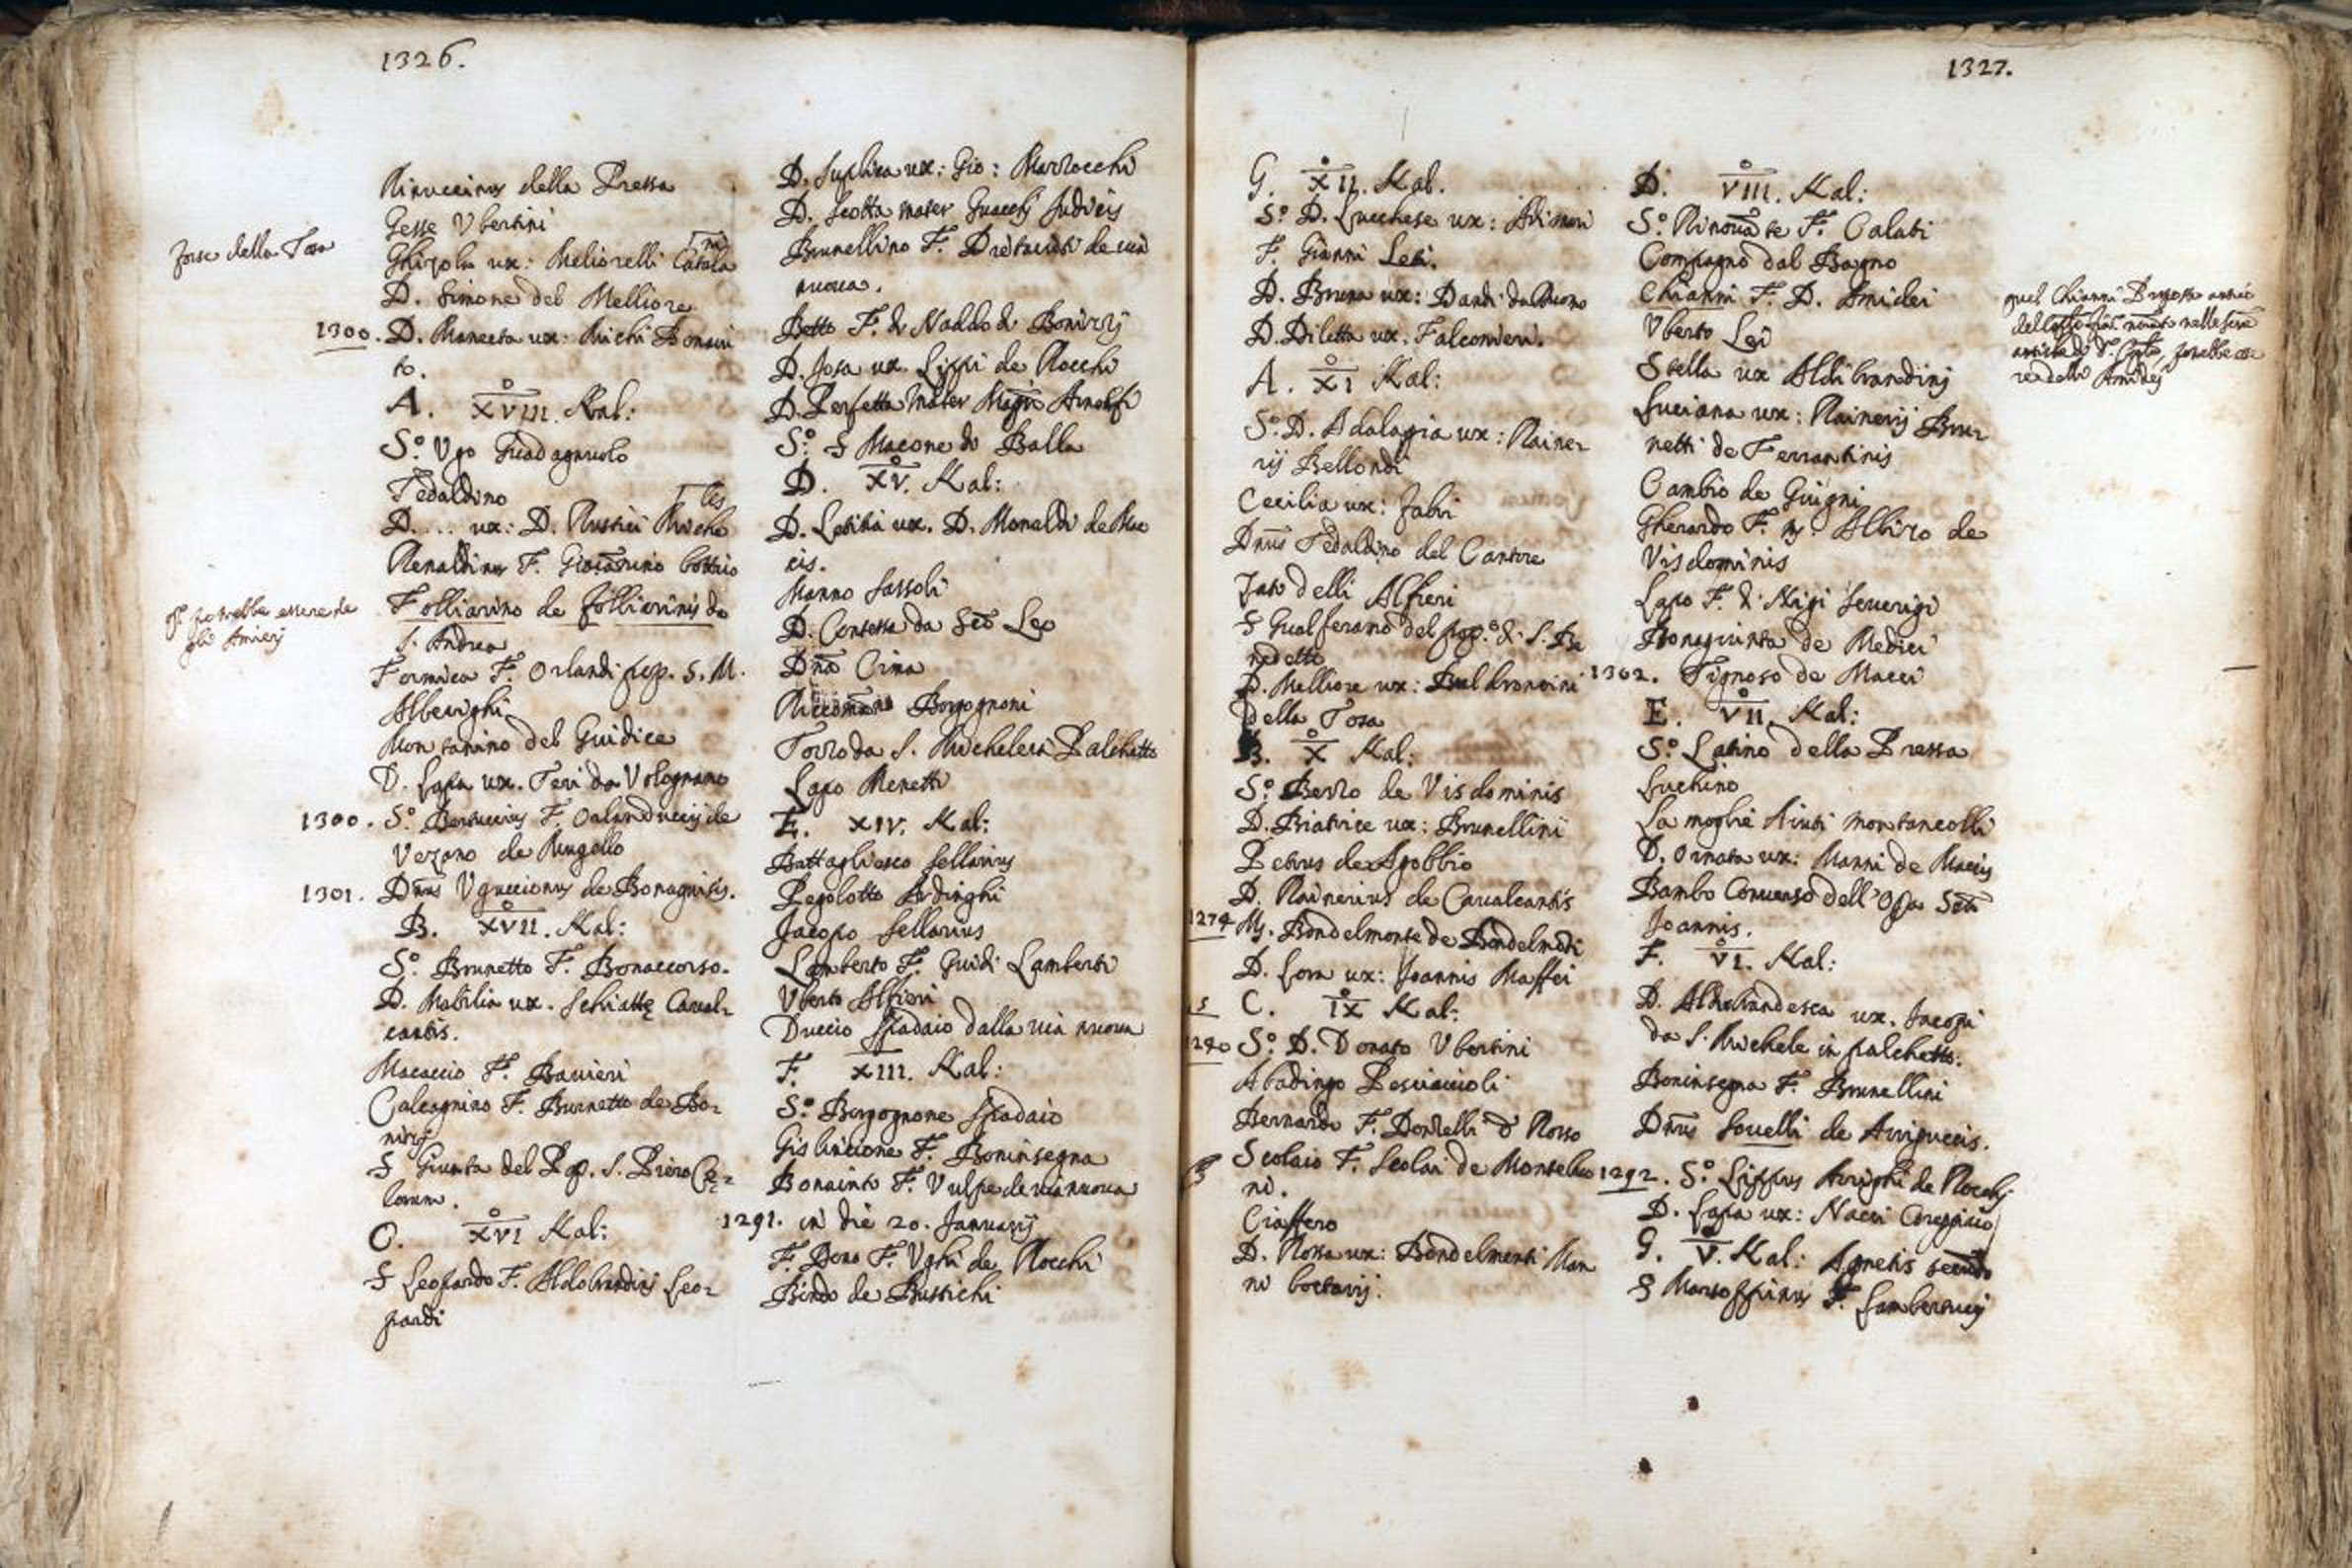 1326.
Rinuccinus della Pressa
Gesse Ubertini
forse della Tosa
Ghizola ux: Meliorelli Catala
ni
D. Simone del Melliore
1300. D. Manecta ux: Michi Bonaiu
to.
A. XVIII. Kal:
Sº. Ugo Guadagnuolo
Tedaldino
D. ... ux: D. Rustici Miche
les
Renaldinus F. Giovannino bottaio
Folliarino de folliarinis da
si potrebbe essere de
gli Amieri
S. Andrea
Formica F. Orlandi pop. S. M.
Alberighi
Montanino del Guidice
D. Lapa ux. Teri da Volognano
1300. Sº. Bertuccius F. Orlanduccij de
Vezano de Mugello
1301. Dnus Uguccionus de Bonaguisis.
B. XVII. Kal:
Sº. Brunetto F. Bonaccorso.
D. Mabilia ux. Schiatte Caval-
cantis.
Macaccio F. Banieri
Calcagnino F. Burnetto de Bo-
nizij
S Giunta del Pop. S. Piero Ce-
lorum.
C. XVI Kal:
S Leopardo F. Aldobrandini Leo-
pardi
D. Suplica ux: Gio: Marzocchi
D. Scotta mater Guaccij Judicis
Brunellino F. Dietaiuti de via
nuova.
Betto F. di Naddo di Bonizzij
D. Josa ux. Lippi de Rocchi
D. Perfetta Mater Magri Arnolfi
Sº. S Macone da Balla
D. XV. Kal:
D. Letitia ux. D. Monaldi de Mac
cis.
Manno Sassoli
D. Contessa da Sco Leo
Dna Cima
Borgognoni
Torzo da S. Michele in Palchetto
Lapo Benetti
E. XIV. Kal:
Battagliesco Sellarius
Pegolotto Ardinghi
Jacopo Sellarius
Lamberto F. Guidi Lamberti
Uberto Alfieri
Duccio Spadaio dalla via nuova
F. XIII. Kal:
Sº. Borgognone Spadaio
Gislincione F. Boninsegna
Bonainto F. Vulpe de via nuova
1291. in die 20. Januarij
F. Dono F. Ughi de Rocchi
Bindo de Bustichi
1327.
G. XII. Kal.
Sº. D. Lucchese ux: Adimari
F. Gianni Leti.
D. Bruna ux: Dardi dal Buono
D. Diletta ux. Falconieri.
A. XI Kal:
Sº. D. Adalagia ux: Rainer
rij Bellondi
Cecilia ux: Fabri
Dnus Tedaldino del Cantore
Jato delli Alfieri
S Gualferano del pop.º di S. Be
nedetto
D. Melliore ux: Baldrovini
della Tosa
B. X Kal:
Sº. Berto de Visdominis
D. Biatrice ux: Brunellini
Petrus de Agobbio
D. Rainerius de Cavalcantis
1274 Mj. Bondelmonte de Bondelmoti
D. Lom ux: Joannis Maffei
C. IX Kal:
1240 Sº. D. Donato Ubertini
Abadingo Pesciaiuoli
Bernardo F. Donzelli d Rosso
Scolaio F. Scolai de Montebuo
ni.
Ciaffero
D. Rossa ux: Bondelmenti Man
ni bottarij.
D. VIII. Kal:
Sº. Rinovate F. Calati
Compagno dal Bagno
Chianni F. D. Amidei
quel Chianni
Uberto Lei
Stella ux Aldibrandini
Luciana ux: Rainerij Bru-
netti de Ferrantinis
Cambio de Guigni
Gherardo F. Mj. Albizo de
Visdominis
Lapo F. di Nigi Severigi
Bonagiunta de Medici
1302. Tignoso de Macci
E. VII. Kal:
Sº. Latino della Pressa
Luchino
La moglie Aiuti montancolli
D. Ornata ux: Manni de Maccis
Bambo Converso dell'Opa Sci
Joannis.
F. VI. Kal:
D. Aldobrandesca ux. Jacopi
da S. Michele in palchetto.
Boninsegna F. Brunellini
Dnus Scuelli de Arrigucciis.
1292. Sº. Lippus Arrighi de Rocchij
D. Lapa ux: Nacci Coreggiaio
G. V. Kal: Agnetis secundo
S Marsoppinus F. Lambertucij